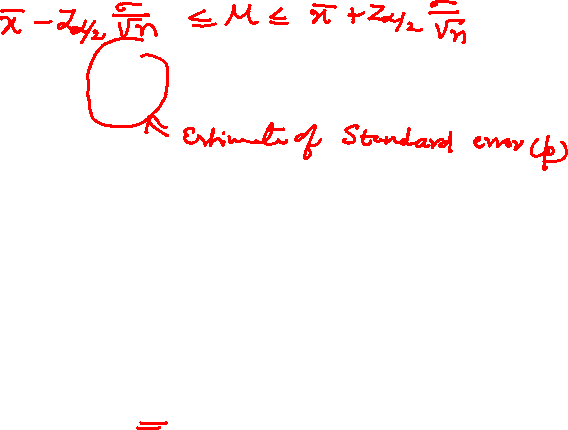 x̄ - Z_{α/2} σ/√n ≤ μ ≤ x̄ + Z_{α/2} σ/√n
Estimate of Standard error (p)
=